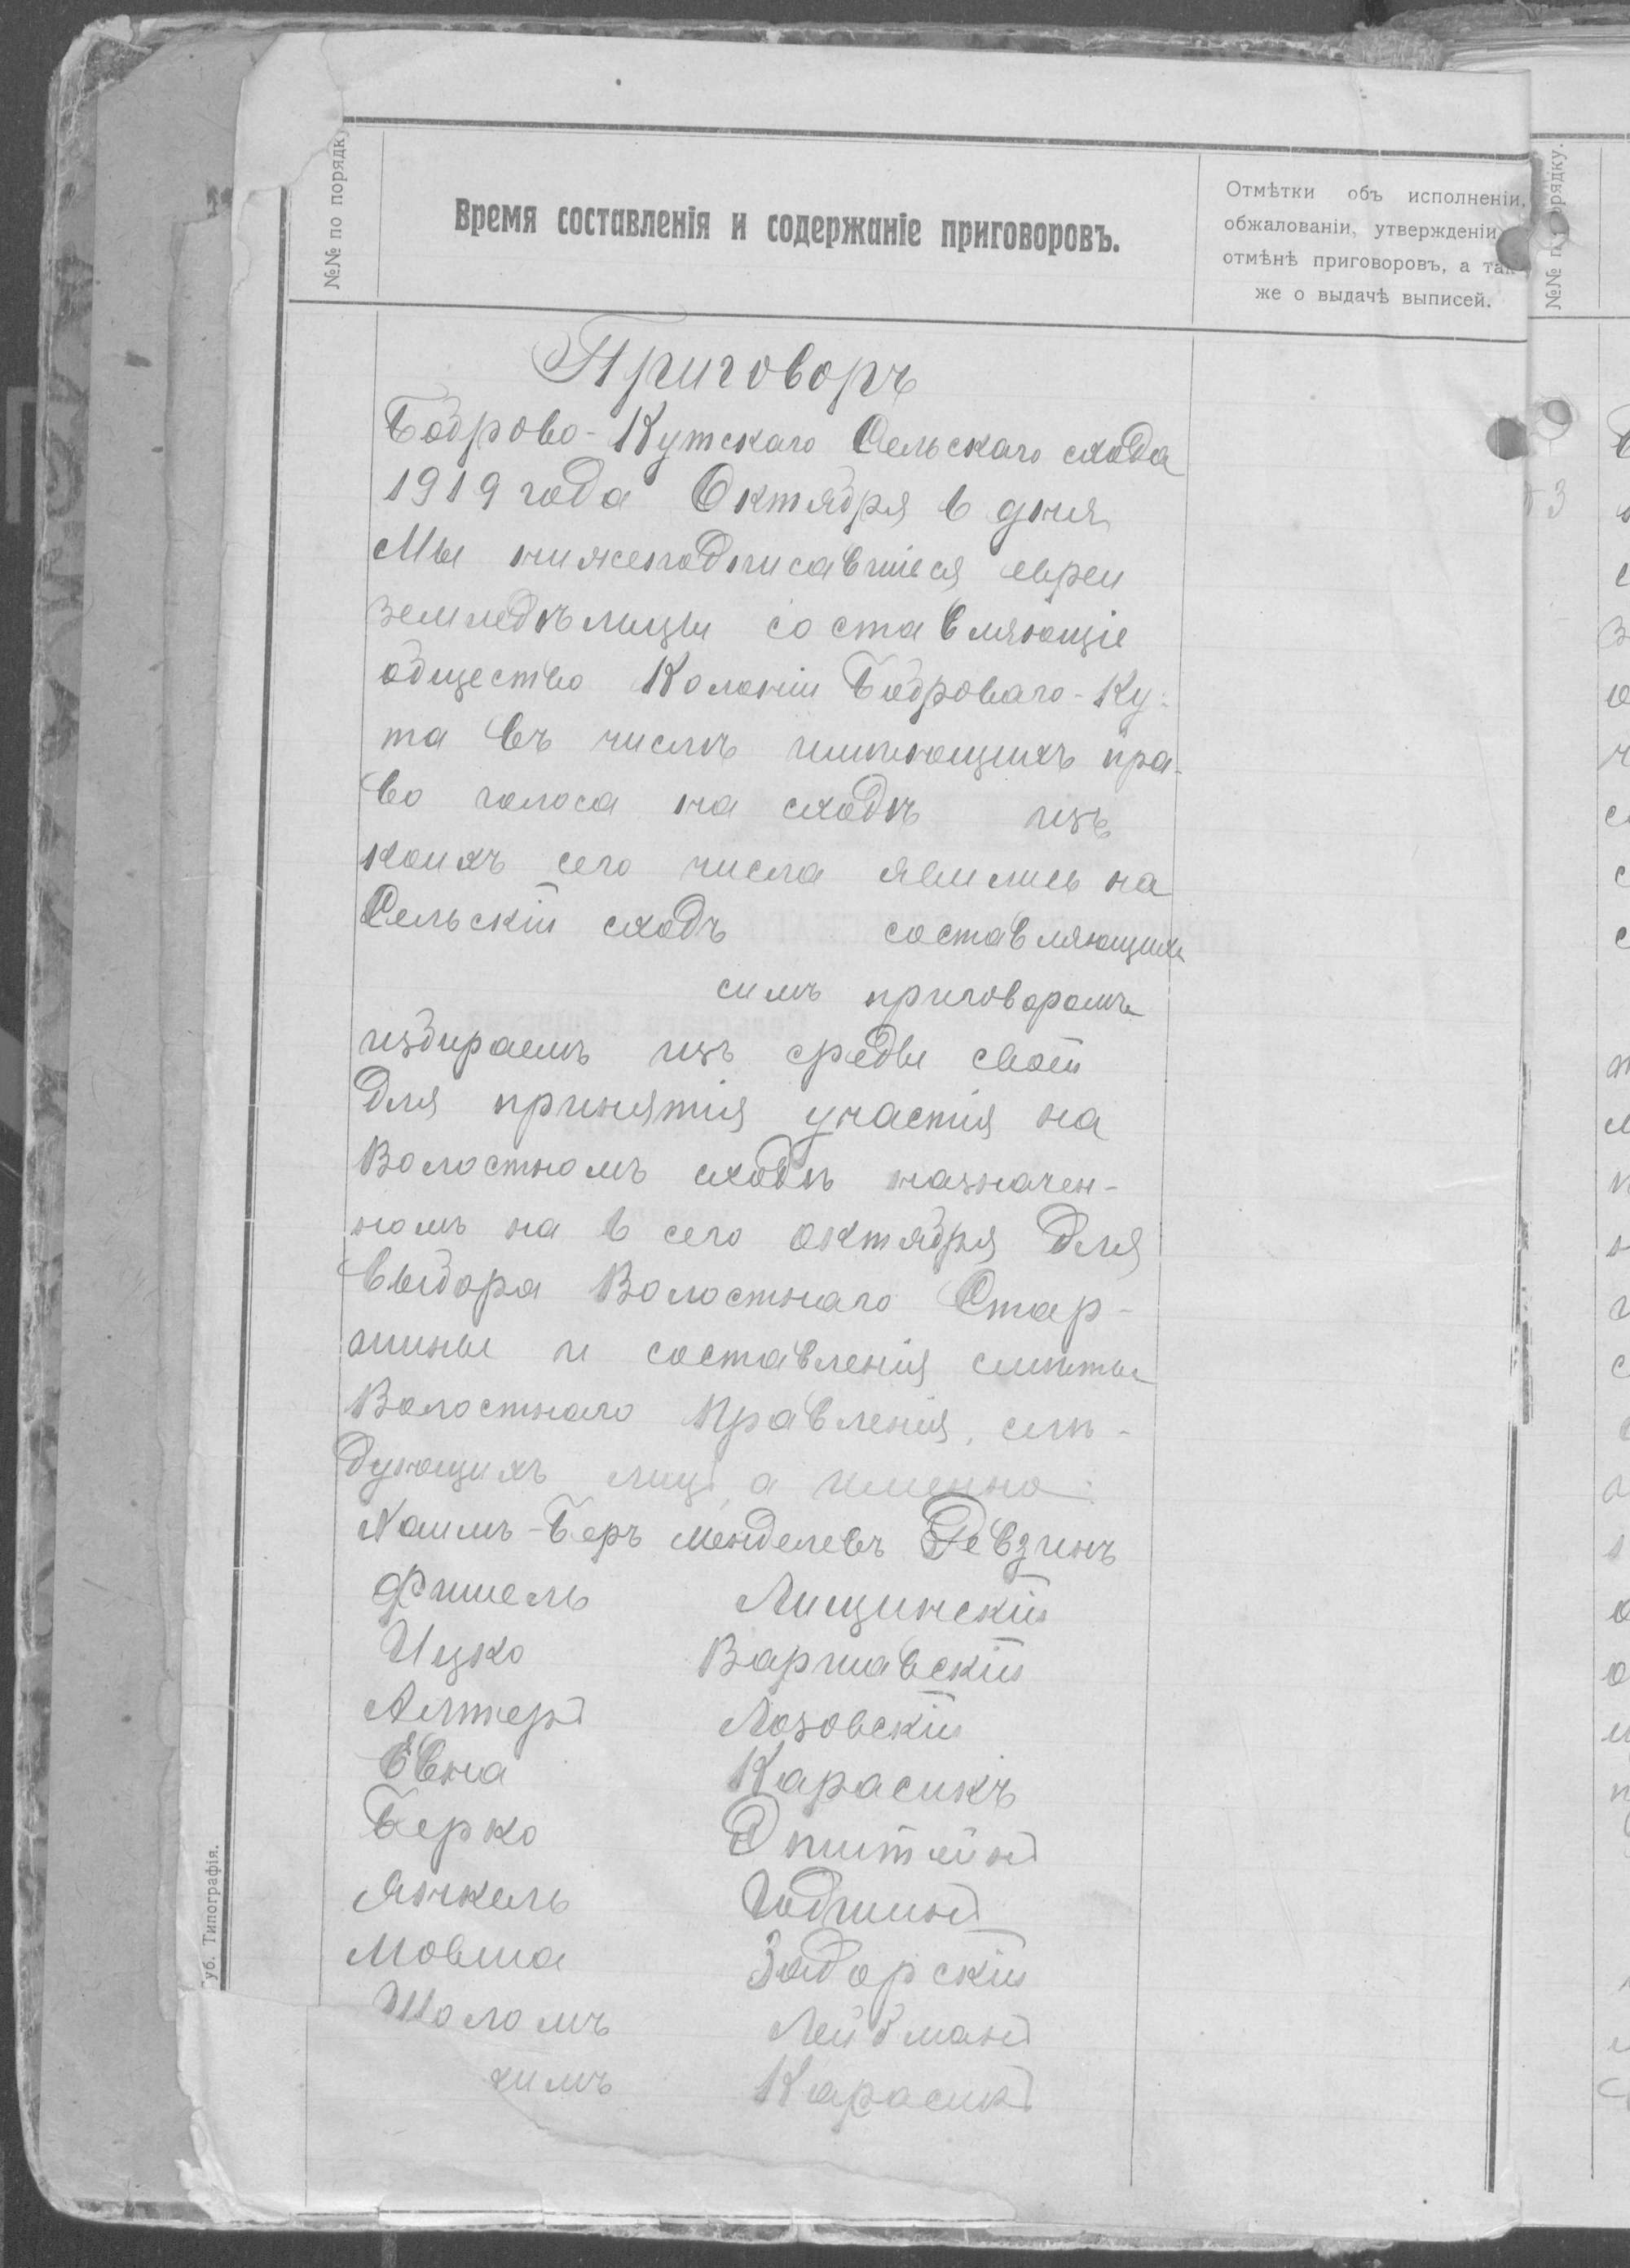 №№ по порядку
Время составленія и содержаніе приговоровъ.
Отмѣтки объ исполненіи,
обжалованіи, утвержденіи
отмѣнѣ приговоровъ, а так
же о выдачѣ выписей.
Приговоръ
Боброво-Кутскаго Сельскаго схода
1919 года Октября 6 дня
Мы нижеподписавшіеся евреи
земледѣльцы составляющіе
общество Колоніи Боброваго-Ку-
та въ числѣ имѣющихъ пра-
во голоса на сходѣ изъ
коихъ сего числа явились на
Сельскій сходъ составляющихъ
симъ приговоромъ
избираемъ изъ среды своей
для принятія участія на
Волостномъ сходѣ назначен-
номъ на 6 сего октября для
выбора Волостнаго Стар-
шины и составленія смѣты
Волостнаго Правленія, слѣ-
дующихъ лицъ а именно:
Хаимъ-Беръ Менделевъ Ревзинъ
Фишель Лищинскій
Ицко Варшавскій
Алтеръ Лозовскій
Евна Карасикъ
Берко Эпштейнъ
Янкель
Мовша Задорскій
Шоломъ Лейбманъ
химъ Карасикъ
уб. Типографія.
№№ п рядку.